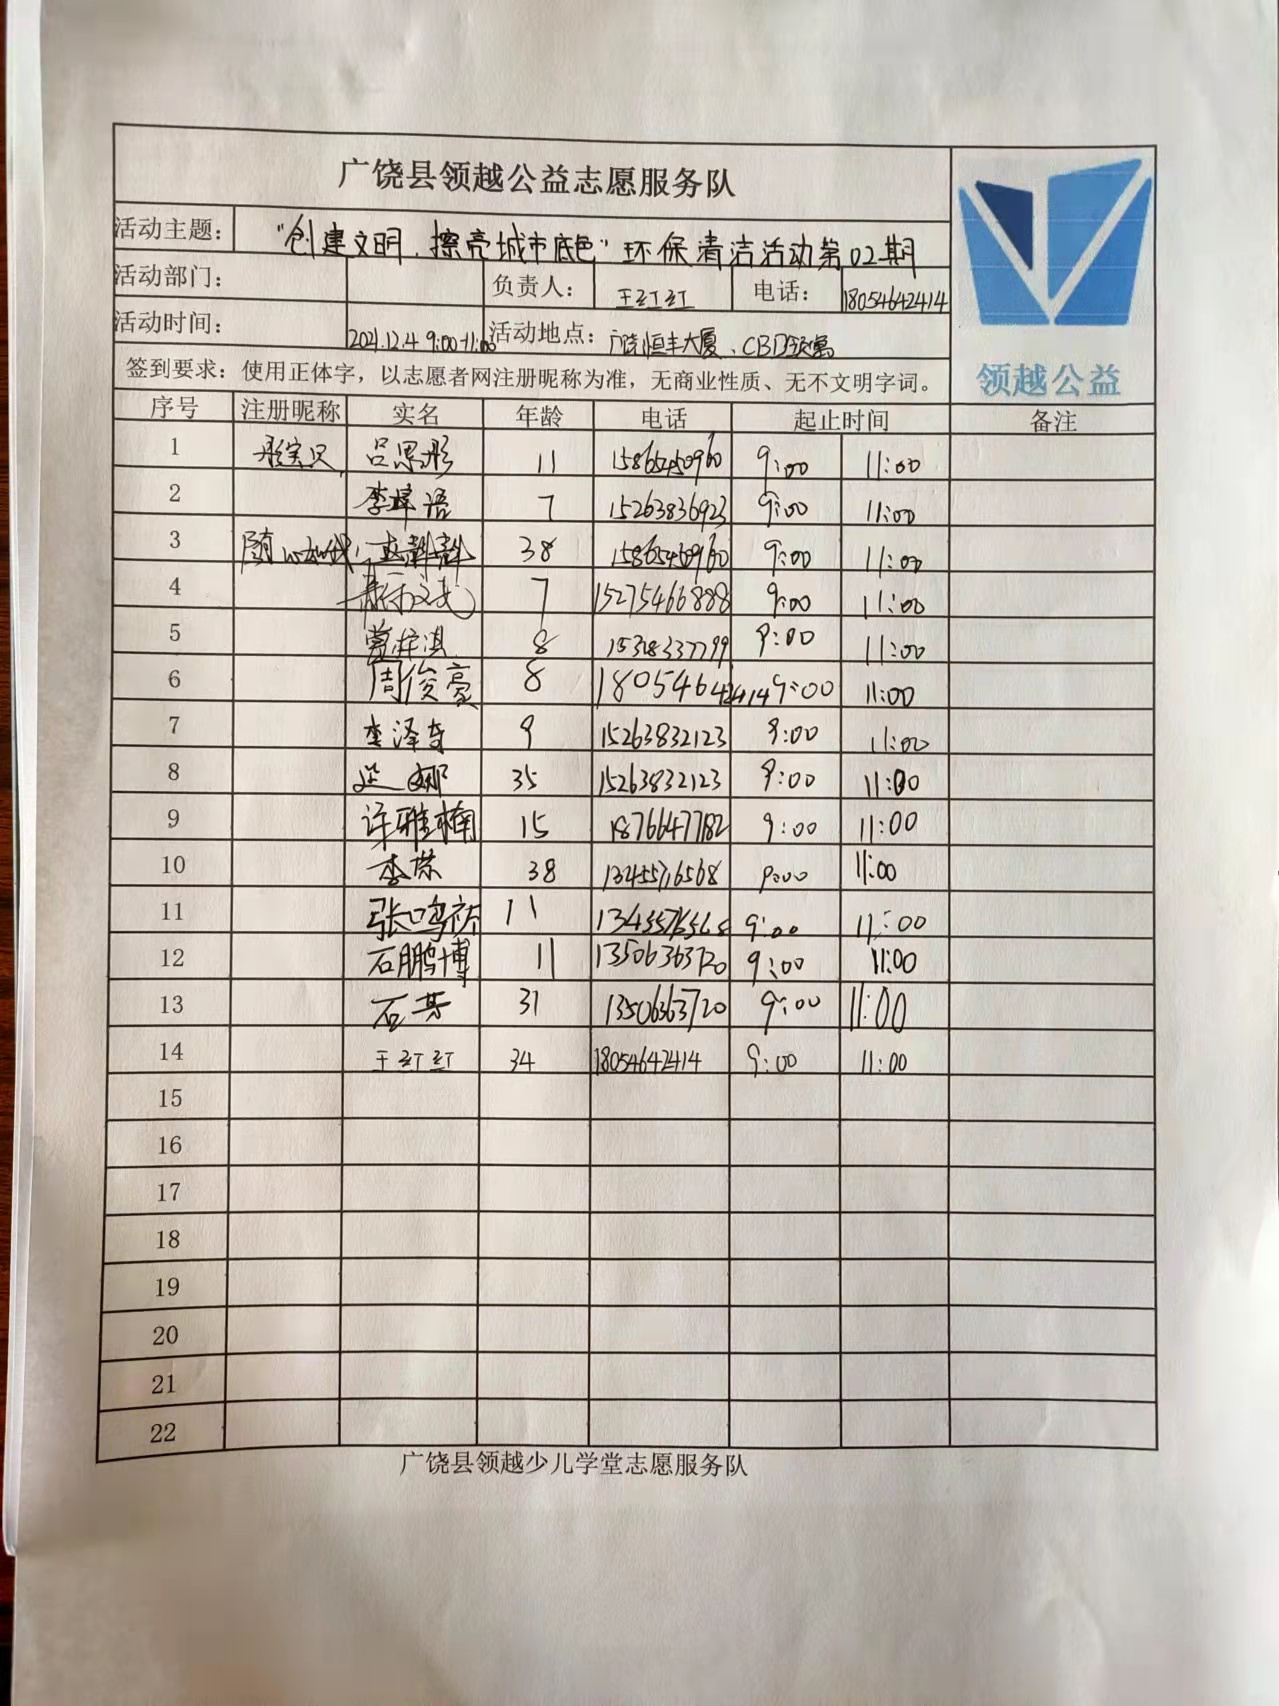 广饶县领越公益志愿服务队
活动主题： "创建文明，擦亮城市底色"环保清洁活动第02期
活动部门： 负责人： 王红红 电话： 18054642414
活动时间： 2021.12.4 9:00-11:00 活动地点： 广饶恒丰大厦、CBD
签到要求：使用正体字，以志愿者网注册昵称为准，无商业性质、无不文明字词。
领越公益
序号 注册昵称 实名 年龄 电话 起止时间 备注
1 吕思彤 11 15865450960 9:00 11:00
2 李 语 7 15263836923 9:00 11:00
3 随心 38 15865450960 9:00 11:00
4 7 15275466888 9:00 11:00
5 梓淇 8 15318337799 9:00 11:00
6 周俊豪 8 18054642414 9:00 11:00
7 李泽 9 15263832123 9:00 11:00
8 娜 35 15263832123 9:00 11:00
9 许雅楠 15 18766477182 9:00 11:00
10 李荣 38 13455716568 9:00 11:00
11 张鸣 11 13455716568 9:00 11:00
12 石鹏博 11 13506363720 9:00 11:00
13 石芳 31 13506363720 9:00 11:00
14 王红红 34 18054642414 9:00 11:00
15
16
17
18
19
20
21
22
广饶县领越少儿学堂志愿服务队